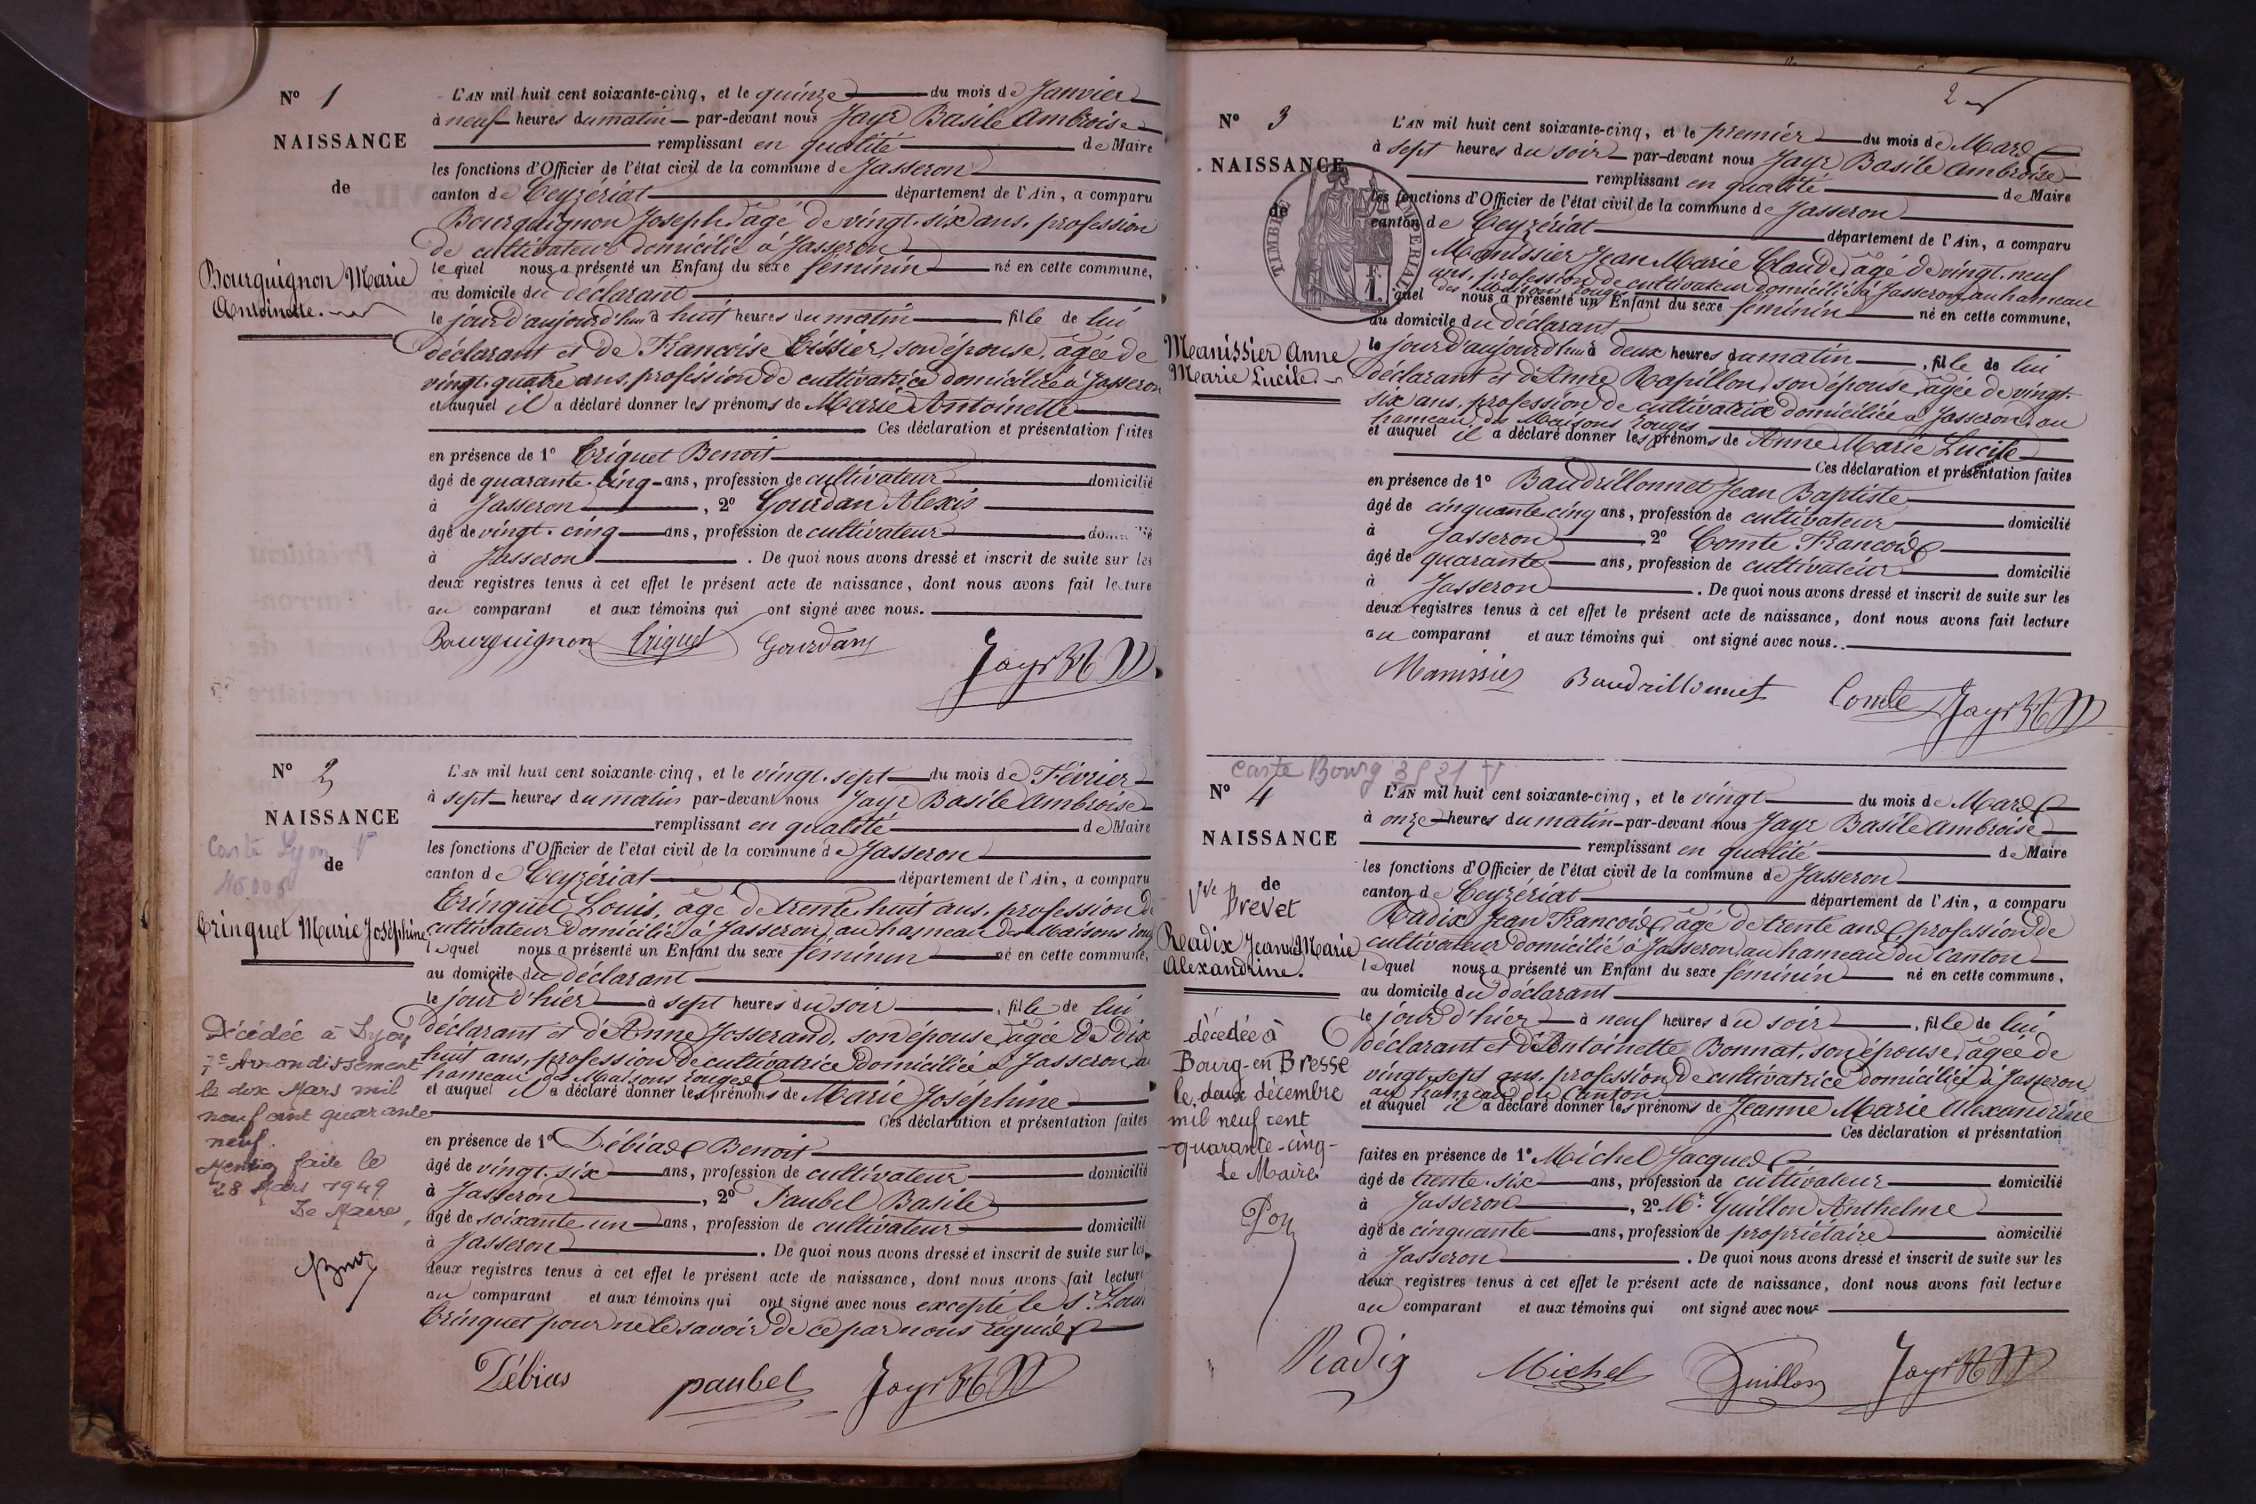 N° 1
NAISSANCE
de
Bourguignon Marie
Antoinette.
L'AN mil huit cent soixante-cinq, et le quinze du mois de Janvier
à neuf heures du matin par-devant nous Jayr Basile Ambroise
remplissant en qualité de Maire
les fonctions d'Officier de l'état civil de la commune de Jasseron
canton de Ceyzériat département de l'Ain, a comparu
Bourguignon Joseph âgé de vingt-six ans, profession
de cultivateur domicilié à Jasseron
lequel nous a présenté un Enfant du sexe féminin né en cette commune,
au domicile du déclarant
le jour d'aujourd'hui à huit heures du matin fille de lui
déclarant et de Francoise Tissier, son épouse, âgée de
vingt-quatre ans, profession de cultivatrice domiciliée à Jasseron
et auquel il a déclaré donner les prénoms de Marie Antoinette
Ces déclaration et présentation faites
en présence de 1° Triquet Benoit
âgé de quarante-cinq ans, profession de cultivateur domicilié
à Jasseron, 2° Gourdan Alexis
âgé de vingt-cinq ans, profession de cultivateur
à Jasseron. De quoi nous avons dressé et inscrit de suite sur les
deux registres tenus à cet effet le présent acte de naissance, dont nous avons fait lecture
au comparant et aux témoins qui ont signé avec nous.
Bourguignon Triquet Gourdan Jayr M
N° 2
NAISSANCE
Carte Lyon V
de
Trinquet Marie Joséphine
Décédée à Lyon
7e Arrondissement
le dix Mars mil
neuf cent quarante
neuf.
Mention faite le
28 Mars 1949
Le Maire,
L'AN mil huit cent soixante-cinq, et le vingt-sept du mois de Février
à sept heures du matin par-devant nous Jayr Basile Ambroise
remplissant en qualité de Maire
les fonctions d'Officier de l'état civil de la commune de Jasseron
canton de Ceyzériat département de l'Ain, a comparu
Trinquet Louis, âgé de trente-huit ans, profession de
cultivateur domicilié à Jasseron, au hameau des Maisons rouges
lequel nous a présenté un Enfant du sexe féminin né en cette commune,
au domicile du déclarant
le jour d'hier à sept heures du soir, fille de lui
déclarant et d'Anne Josserand, son épouse, âgée de dix
huit ans, profession de cultivatrice domiciliée à Jasseron, au
hameau des Maisons rouges
et auquel il a déclaré donner les prénoms de Marie Joséphine
Ces déclaration et présentation faites
en présence de 1° Débias Benoit
âgé de vingt-six ans, profession de cultivateur domicilié
à Jasseron, 2° Paubel Basile
âgé de soixante un ans, profession de cultivateur domicilié
à Jasseron. De quoi nous avons dressé et inscrit de suite sur les
deux registres tenus à cet effet le présent acte de naissance, dont nous avons fait lecture
au comparant et aux témoins qui ont signé avec nous excepté le Sr Louis
Trinquet pour ne le savoir de ce par nous requis
Débias paubel Jayr M
2
N° 3
NAISSANCE
de
TIMBRE IMPERIAL
Manissier Anne
Marie Lucile
L'AN mil huit cent soixante-cinq, et le premier du mois de Mars
à sept heures du soir par-devant nous Jayr Basile Ambroise
remplissant en qualité de Maire
les fonctions d'Officier de l'état civil de la commune de Jasseron
canton de Ceyzériat département de l'Ain, a comparu
Manissier Jean Marie Claude, âgé de vingt-neuf
ans, profession de cultivateur domicilié à Jasseron, au hameau
des Maisons rouges
quel nous a présenté un Enfant du sexe féminin né en cette commune,
au domicile du déclarant
le jour d'aujourd'hui à deux heures du matin, fille de lui
déclarant et d'Anne Rapillon, son épouse, âgée de vingt-
six ans, profession de cultivatrice domiciliée à Jasseron, au
hameau des Maisons rouges
et auquel il a déclaré donner les prénoms de Anne Marie Lucile
Ces déclaration et présentation faites
en présence de 1° Baudrillonnet Jean Baptiste
âgé de cinquante cinq ans, profession de cultivateur domicilié
à Jasseron 2° Comte Francois
âgé de quarante ans, profession de cultivateur domicilié
à Jasseron. De quoi nous avons dressé et inscrit de suite sur les
deux registres tenus à cet effet le présent acte de naissance, dont nous avons fait lecture
au comparant et aux témoins qui ont signé avec nous.
Manissier Baudrillonnet Comte Jayr M
Carte Bourg
N° 4
NAISSANCE
de
Vve Brevet
Radix Jeanne Marie
Alexandrine.
décédée à
Bourg-en-Bresse
le deux décembre
mil neuf cent
quarante-cinq-
Le Maire
L'AN mil huit cent soixante-cinq, et le vingt du mois de Mars
à onze heures du matin par-devant nous Jayr Basile Ambroise
remplissant en qualité de Maire
les fonctions d'Officier de l'état civil de la commune de Jasseron
canton de Ceyzériat département de l'Ain, a comparu
Radix Jean Francois, âgé de trente ans, profession de
cultivateur domicilié à Jasseron, au hameau du Canton
lequel nous a présenté un Enfant du sexe féminin né en cette commune,
au domicile du déclarant
le jour d'hier à neuf heures du soir, fille de lui
déclarant et d'Antoinette Bonnat, son épouse, âgée de
vingt-sept ans, profession de cultivatrice domiciliée à Jasseron
au hameau du Canton
et auquel il a déclaré donner les prénoms de Jeanne Marie Alexandrine
Ces déclaration et présentation
faites en présence de 1° Michel Jacques
âgé de trente-six ans, profession de cultivateur domicilié
à Jasseron, 2° Mr. Guillon Anthelme
âgé de cinquante ans, profession de propriétaire domicilié
à Jasseron. De quoi nous avons dressé et inscrit de suite sur les
deux registres tenus à cet effet le présent acte de naissance, dont nous avons fait lecture
au comparant et aux témoins qui ont signé avec nous
Radix Michel Guillon Jayr M